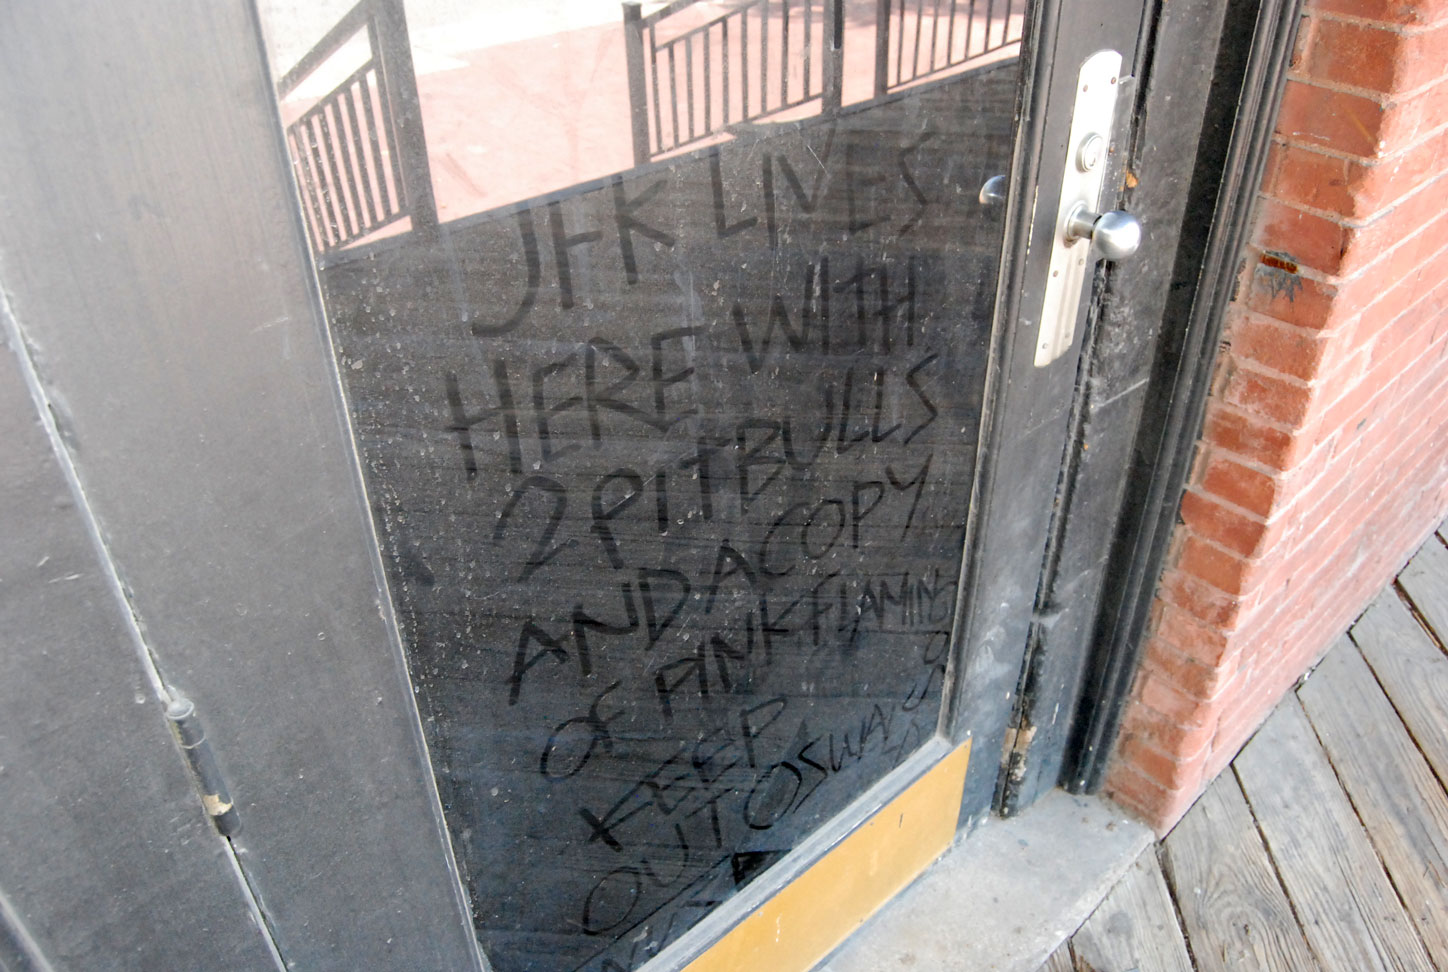 JFK LIVES
HERE WITH
2 PITBULLS
AND A COPY
OF PINK FLAMINGOS
KEEP
OUT OSWALD